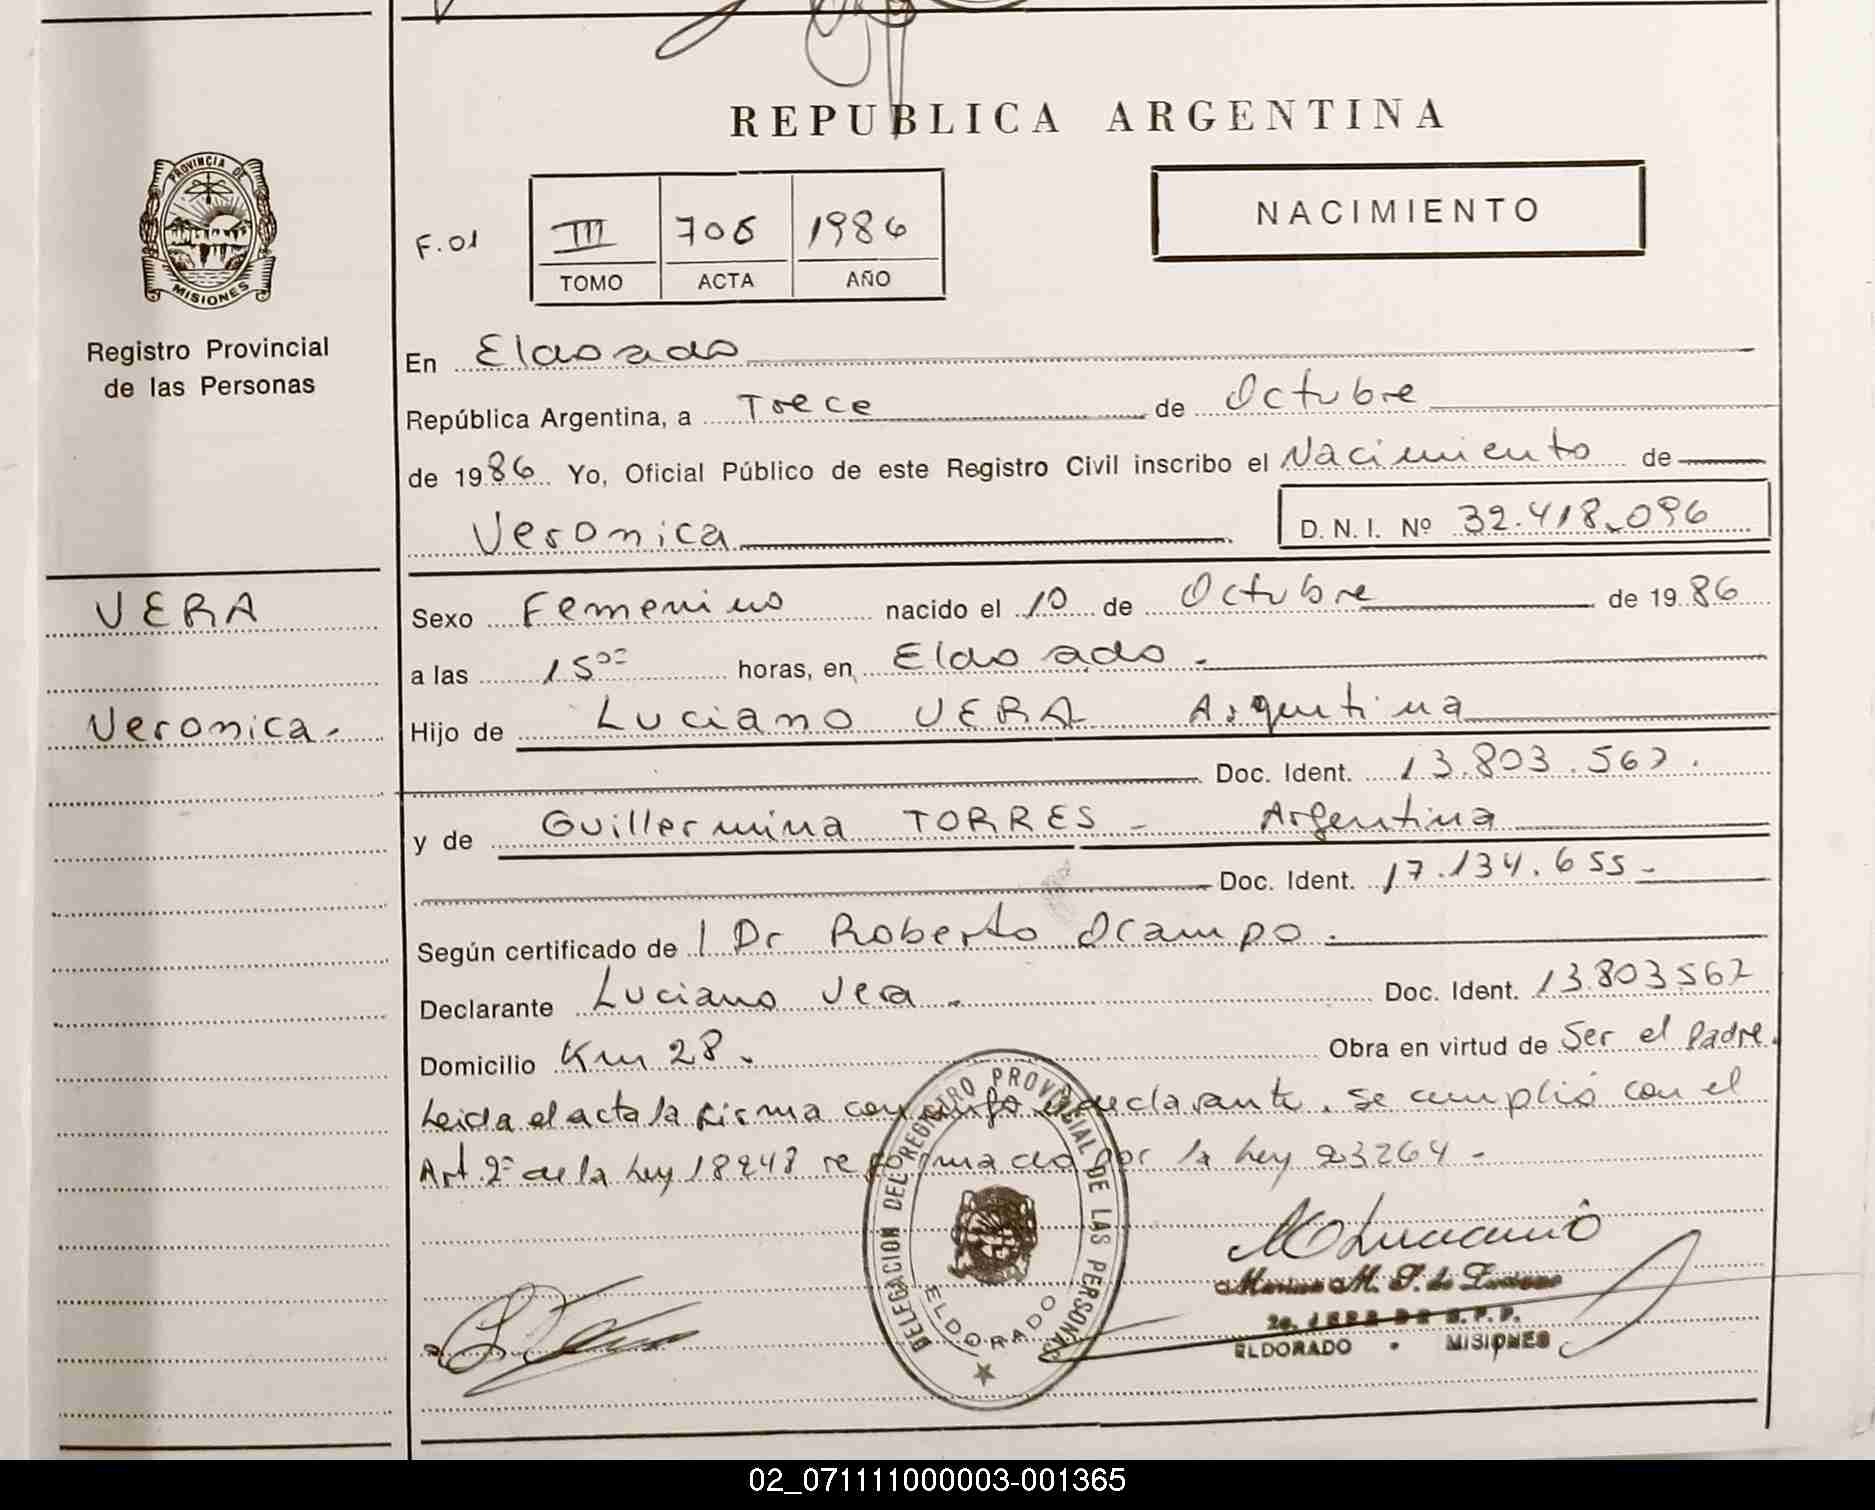 REPUBLICA ARGENTINA
PROVINCIA DE
MISIONES
Registro Provincial
de las Personas
F.01
III 706 1986
TOMO ACTA AÑO
NACIMIENTO
En Eldorado
República Argentina, a Trece de Octubre
de 1986 Yo, Oficial Público de este Registro Civil inscribo el Nacimiento de
Veronica D. N. I. Nº 32.418.096
VERA
Veronica.-
Sexo Femenino nacido el 10 de Octubre de 1986
a las 15⁰⁰ horas, en Eldorado.
Hijo de Luciano VERA Argentina
Doc. Ident. 13.803.567.
y de Guillermina TORRES - Argentina
Doc. Ident. 17.134.655.-
Según certificado de l Dr Roberto Ocampo.
Declarante Luciano Vera. Doc. Ident. 13.803567
Domicilio Km 28. Obra en virtud de Ser el Padre.
Leida el acta la firma conmigo el declarante. se cumplió con el
Art. 2º de la Ley 18248 reformada por la Ley 23264 -
DELEGACION DEL REGISTRO PROVINCIAL DE LAS PERSONAS
ELDORADO
2a. JEFE DE R.P.P.
ELDORADO - MISIONES
02_071111000003-001365